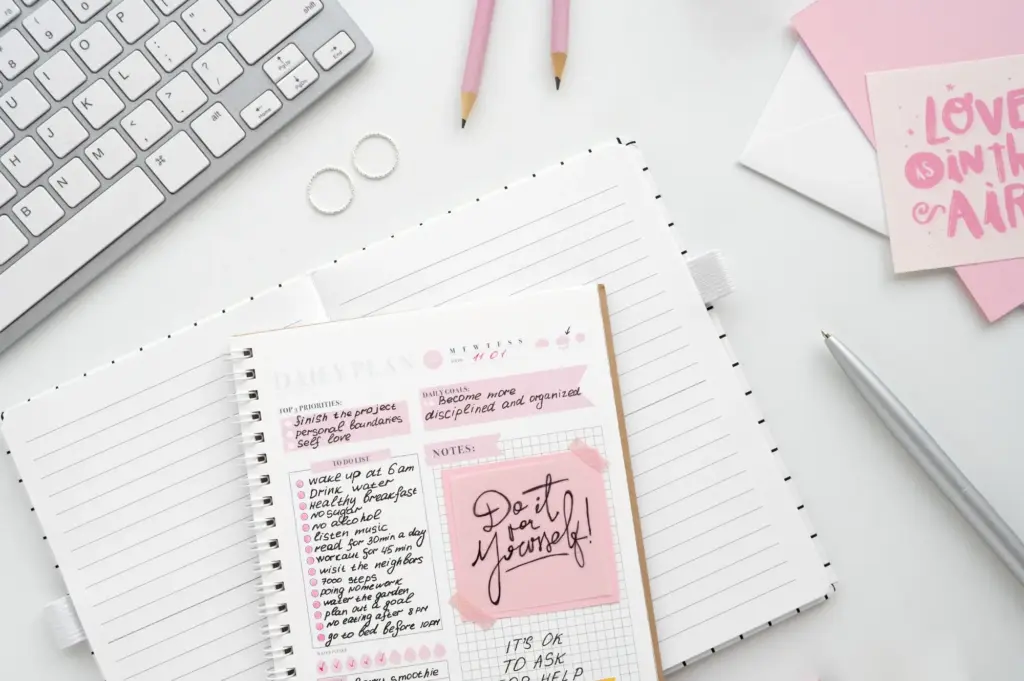 DAILY PLAN
M T W T F S S
11 01
TOP 3 PRIORITIES:
finish the project
personal boundaries
self love
DAILY GOALS:
Become more
disciplined and organized
TO DO LIST
wake up at 6 am
Drink water
Healthy breakfast
No sugar
no alcohol
listen music
read for 30min a day
workout for 45 min
wisit the neighbors
7000 steps
Doing Homework
water the garden
plan out a goal
No eating after 8 PM
go to bed before 10PM
smoothie
NOTES:
Do it
for
yourself!
IT'S OK
TO ASK
FOR HELP
LOVE
IS IN THE
AIR
8
9
0
U
I
O
P
H
J
K
L
B
N
M
<
>
?
alt
⌘
shift